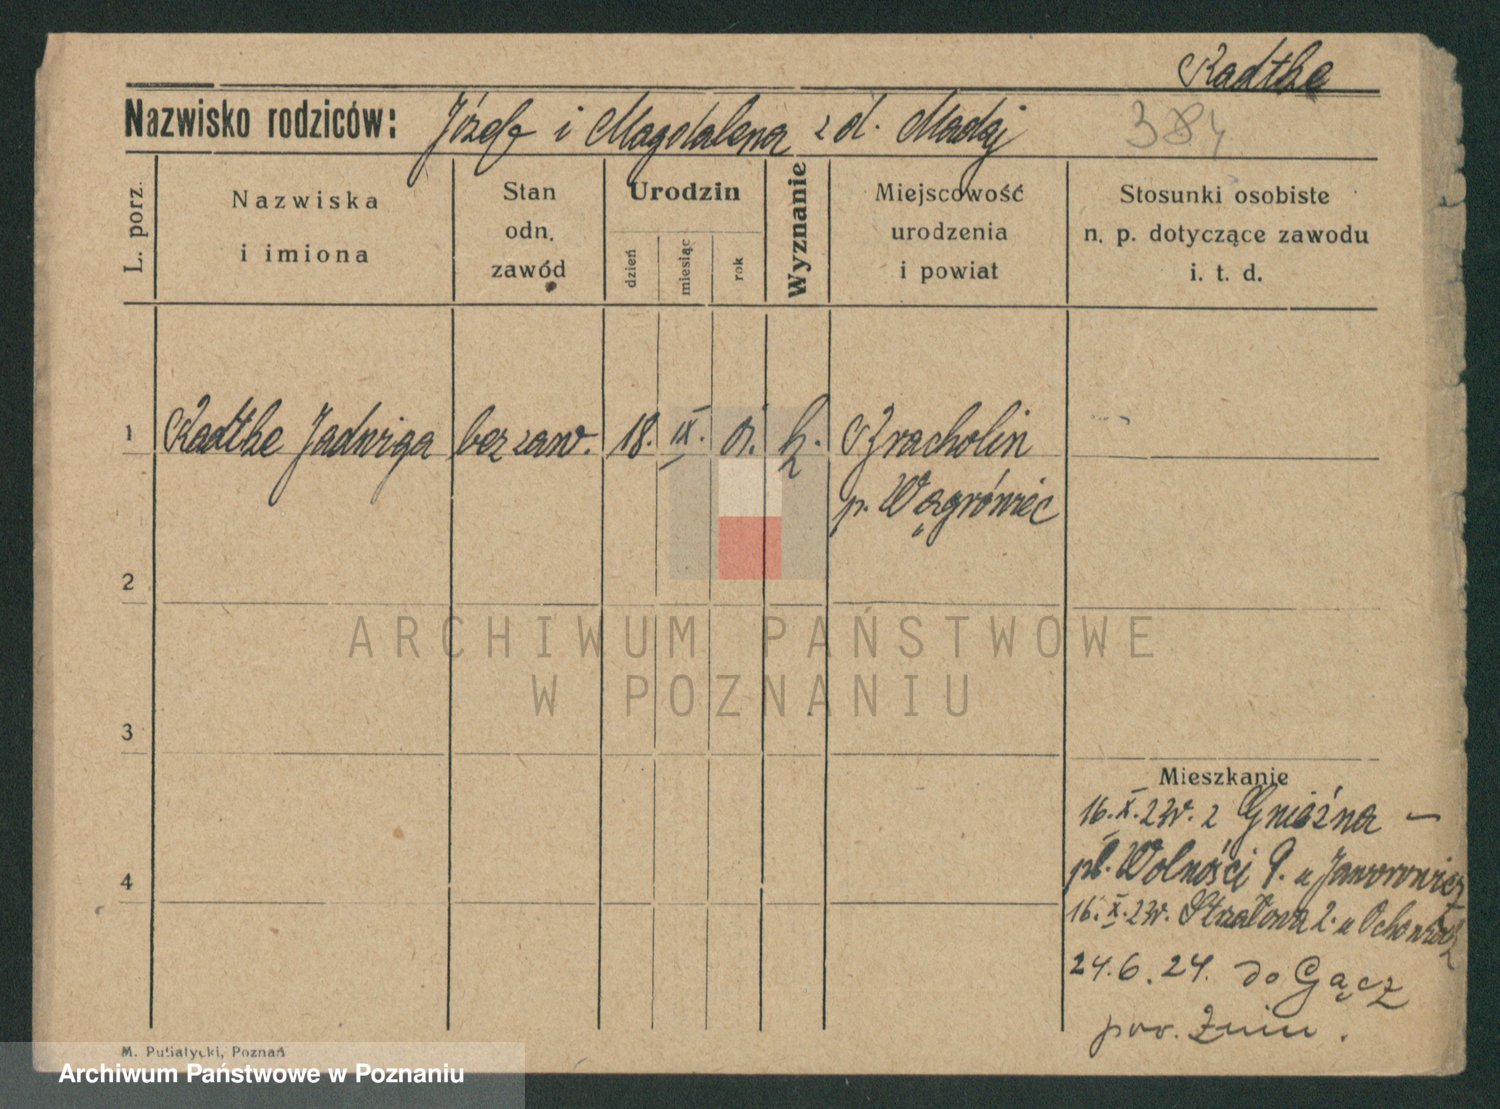 Radtke
Nazwisko rodziców: Józef i Magdalena z d. Madaj
384
L. porz.
Nazwiska
i imiona
Stan
odn.
zawód
Urodzin
dzień
miesiąc
rok
Wyznanie
Miejscowość
urodzenia
i powiat
Stosunki osobiste
n. p. dotyczące zawodu
i. t. d.
1 Radtke Jadwiga bez zaw. 18. IX. 01. k.
p. Wągrówiec
2
3
4
ARCHIWUM PAŃSTWOWE
W POZNANIU
Mieszkanie
16.X.23r. z Gniézna —
pl. Wolności 9. u
16.X.23r. 2. u
24.6.24. do Gącz
pow. Żnin.
M. Putiatycki, Poznań
Archiwum Państwowe w Poznaniu